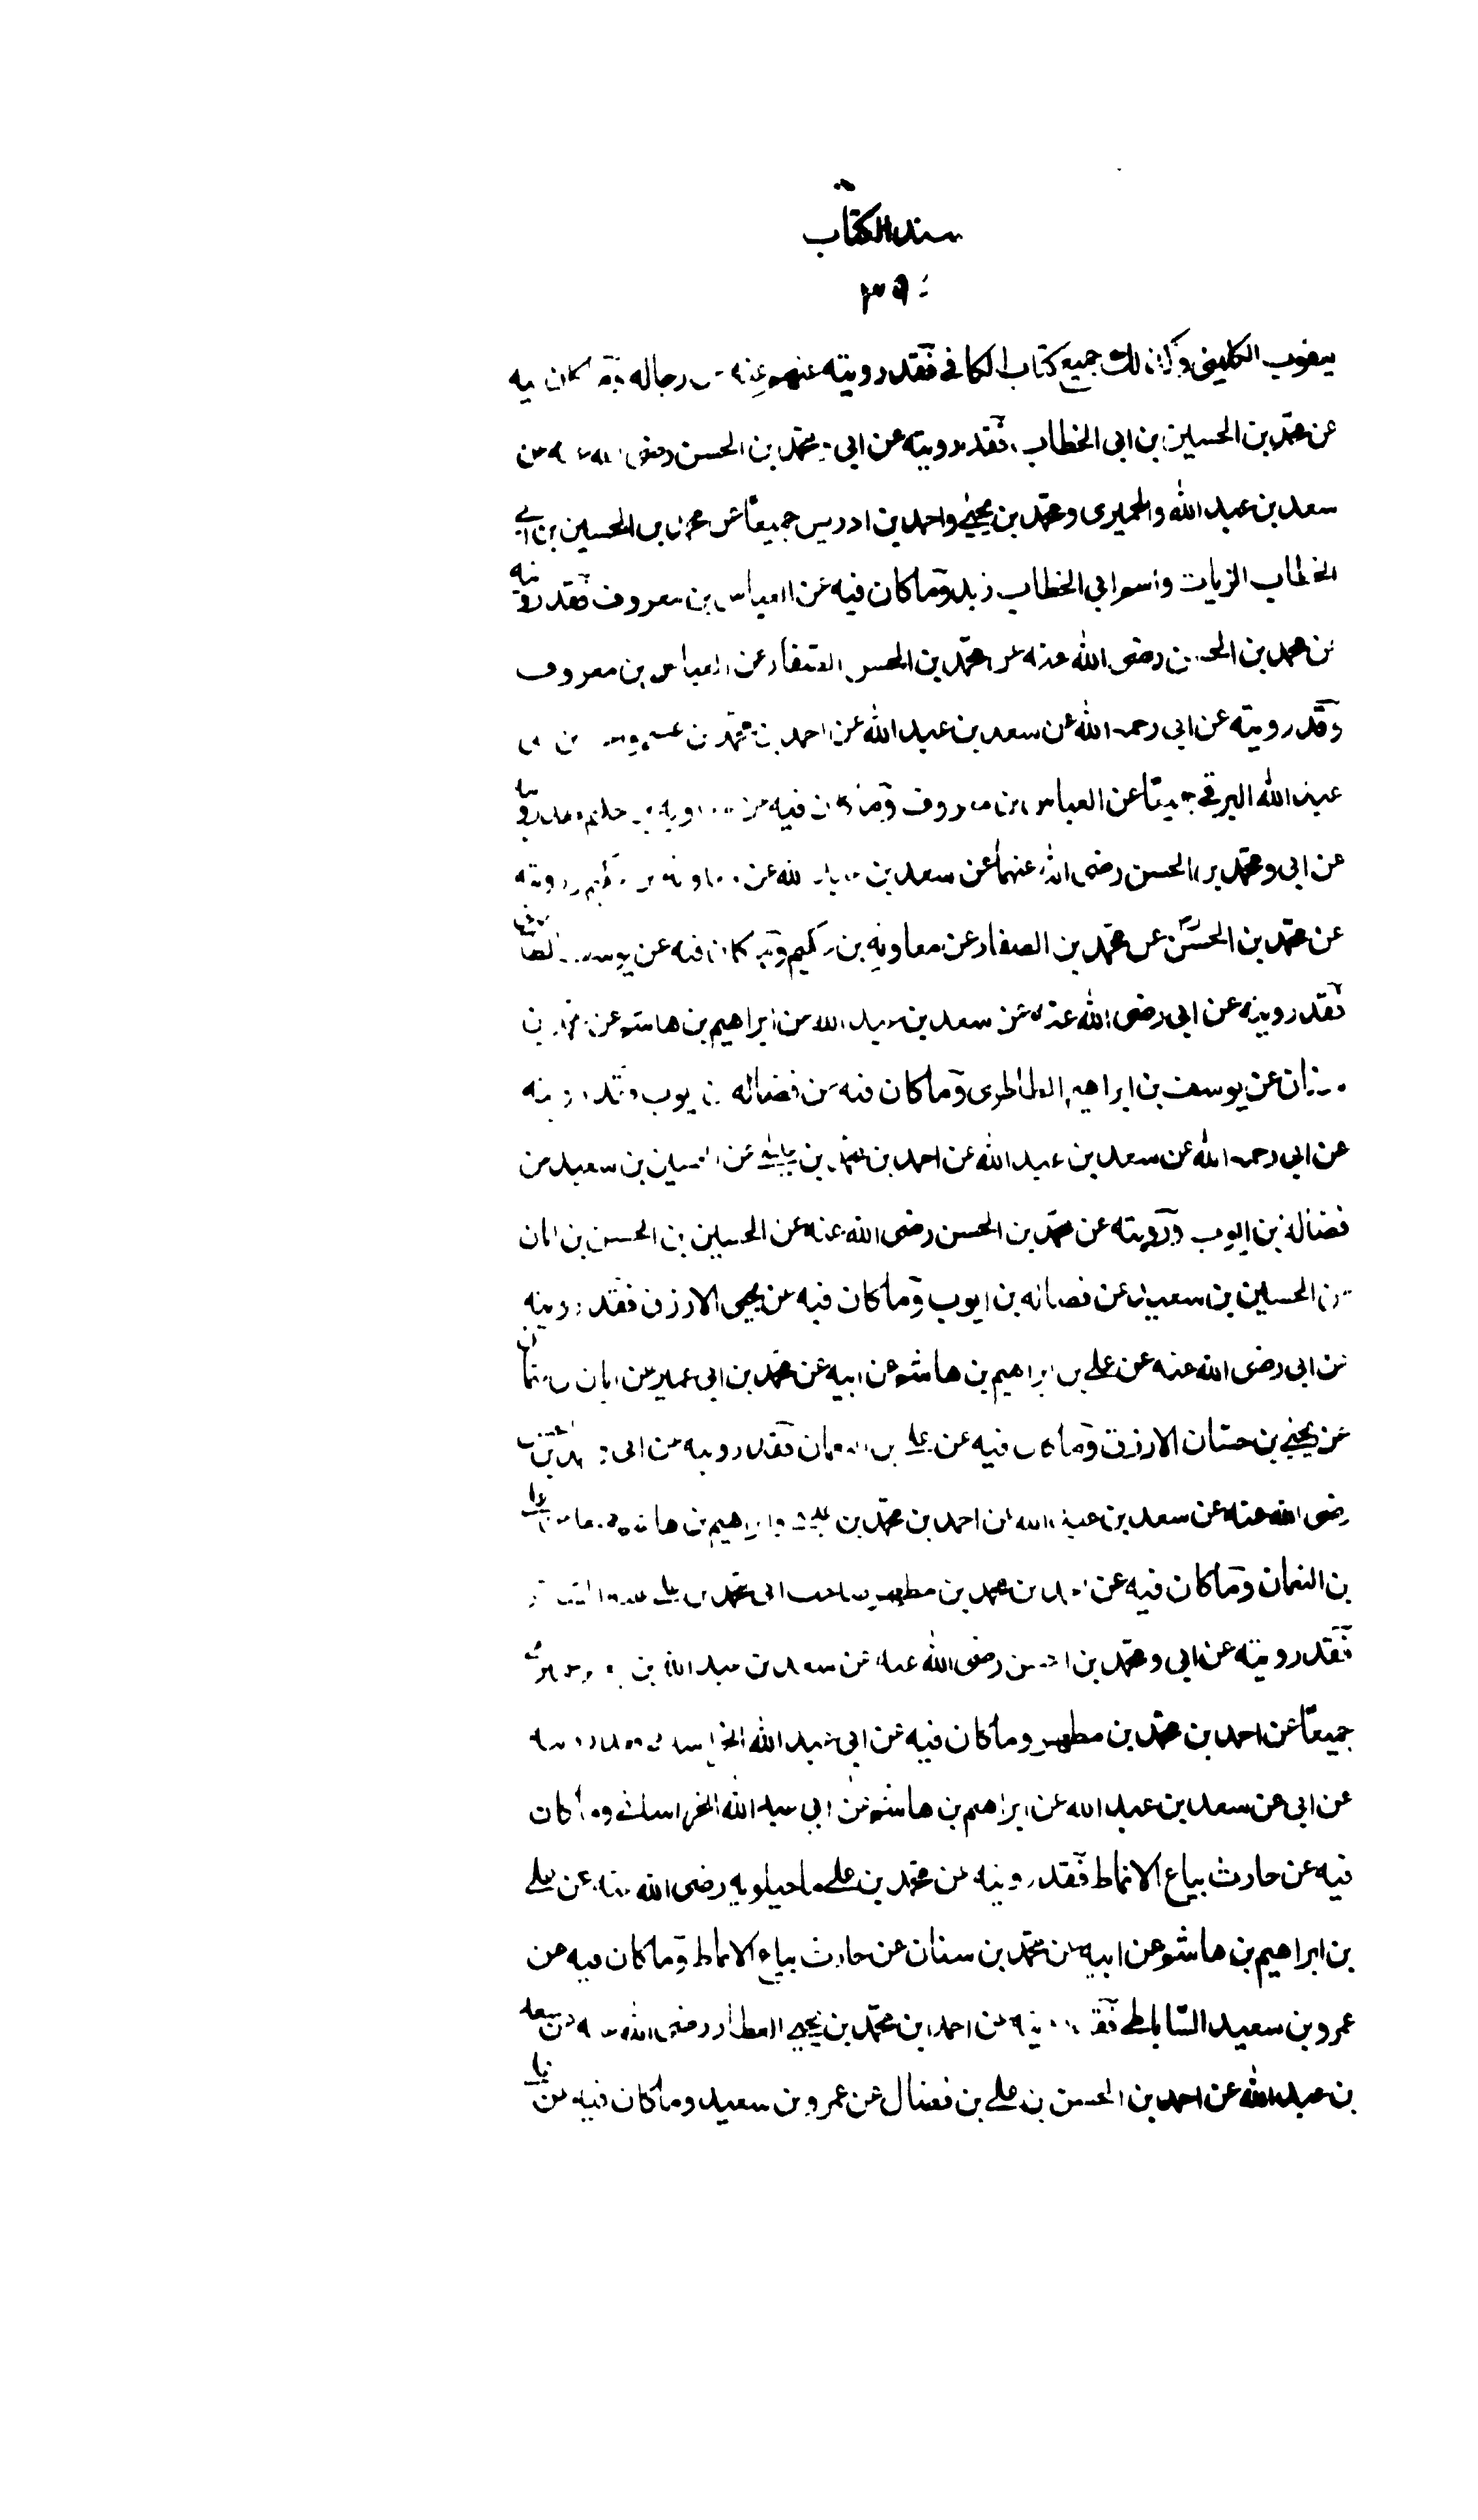 سند الكتاب
٣٩٠
يعقوب الكليني وكذلك جميع كتاب الكافي فقد رويته عنهم عنه عن رجاله وما كان فيه
عن محمد بن الحسين بن ابي الخطاب فقد رويته عن ابي ومحمد بن الحسن رضي الله عنهما عن
سعد بن عبد الله والحميرى ومحمد بن يحيى واحمد بن ادريس جميعا عن محمد بن الحسين بن ابي
الخطاب الزيات واسم ابي الخطاب زيد وما كان فيه عن العباس بن معروف فقد رويته
عن محمد بن الحسن رضي الله عنه عن محمد بن الحسن الصفار عن العباس بن معروف
وقد رويته عن ابي رحمه الله عن سعد بن عبد الله عن احمد بن محمد بن
عبد الله البرقي جميعا عن العباس بن معروف وما كان فيه عن معاوية بن حكيم فقد رويته
عن ابي ومحمد بن الحسن رضي الله عنهما عن سعد بن عبد الله عن معاوية بن حكيم ورويته
عن محمد بن الحسن عن محمد بن الصفار عن معاوية بن حكيم وما كان فيه عن يوسف
فقد رويته عن ابي رضي الله عنه عن سعد بن عبد الله عن ابراهيم بن هاشم عن محمد بن
عن يوسف بن ابراهيم الطاطرى وما كان فيه عن فضالة بن ايوب فقد رويته
عن ابي رحمه الله عن سعد بن عبد الله عن احمد بن محمد بن عن الحسين بن سعيد عن
فضالة بن ايوب ورويته عن محمد بن الحسن رضي الله عنه عن الحسين بن الحسن بن ابان
عن الحسين بن سعيد عن فضالة بن ايوب وما كان فيه عن يحيى الازرق فقد رويته
عن ابي رضي الله عنه عن علي بن ابراهيم بن هاشم عن ابيه عن محمد بن ابي عمير عن ابان بن عثمان
عن يحيى بن حسان الازرق وما كان فيه عن علي بن النعمان فقد رويته عن ابي ومحمد بن الحسن
رضي الله عنه عن سعد بن عبد الله عن احمد بن محمد بن وابراهيم بن هاشم جميعا عن علي
بن النعمان وما كان فيه عن احمد بن محمد بن مطهر صاحب ابي محمد
فقد رويته عن ابي ومحمد بن الحسن رضي الله عنه عن سعد بن عبد الله
جميعا عن احمد بن محمد بن مطهر وما كان فيه عن ابي عبد الله الخراساني فقد رويته
عن ابي عن سعد بن عبد الله عن ابراهيم بن هاشم عن ابي عبد الله الخراساني وما كان
فيه عن حارث بياع الانماط فقد رويته عن محمد بن علي ماجيلويه رضي الله عنه عن علي
بن ابراهيم بن هاشم عن ابيه عن محمد بن سنان عن حارث بياع الانماط وما كان فيه عن
عمرو بن سعيد الساباطي فقد رويته عن احمد بن محمد بن يحيى العطار رضي الله عنه عن سعد
بن عبد الله عن احمد بن الحسن بن علي بن فضال عن عمرو بن سعيد وما كان فيه عن